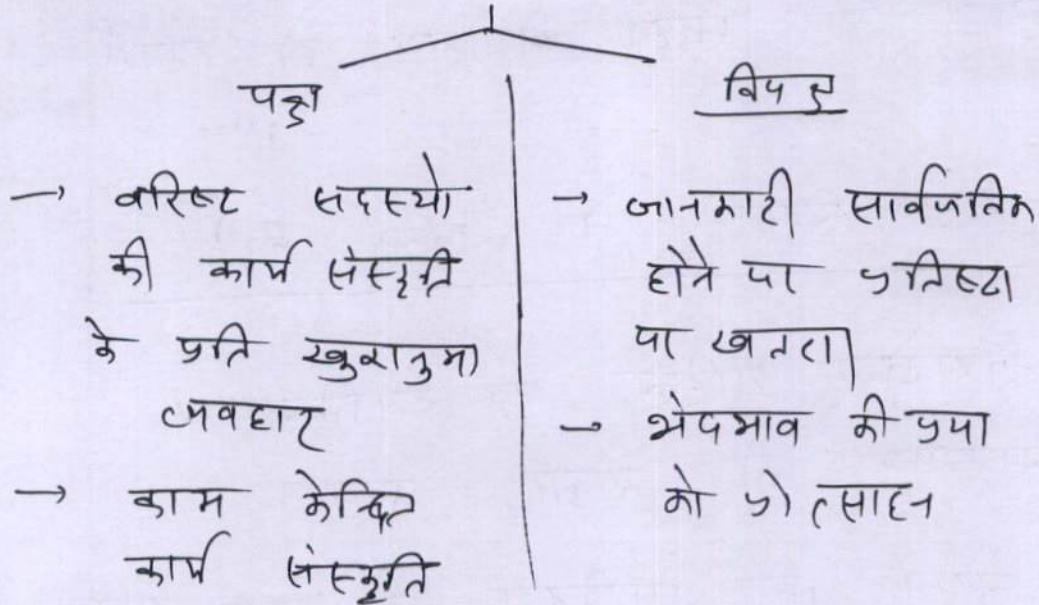 पक्ष
→ वरिष्ट सदस्यो
की कार्य संस्कृति
के प्रति खुशनुमा
व्यवहार
→ काम केन्द्रित
कार्य संस्कृति
विपक्ष
→ जानकारी सार्वजनिक
होने पर प्रतिष्टा
पर खतरा
→ भेदभाव की प्रथा
को प्रोत्साहन